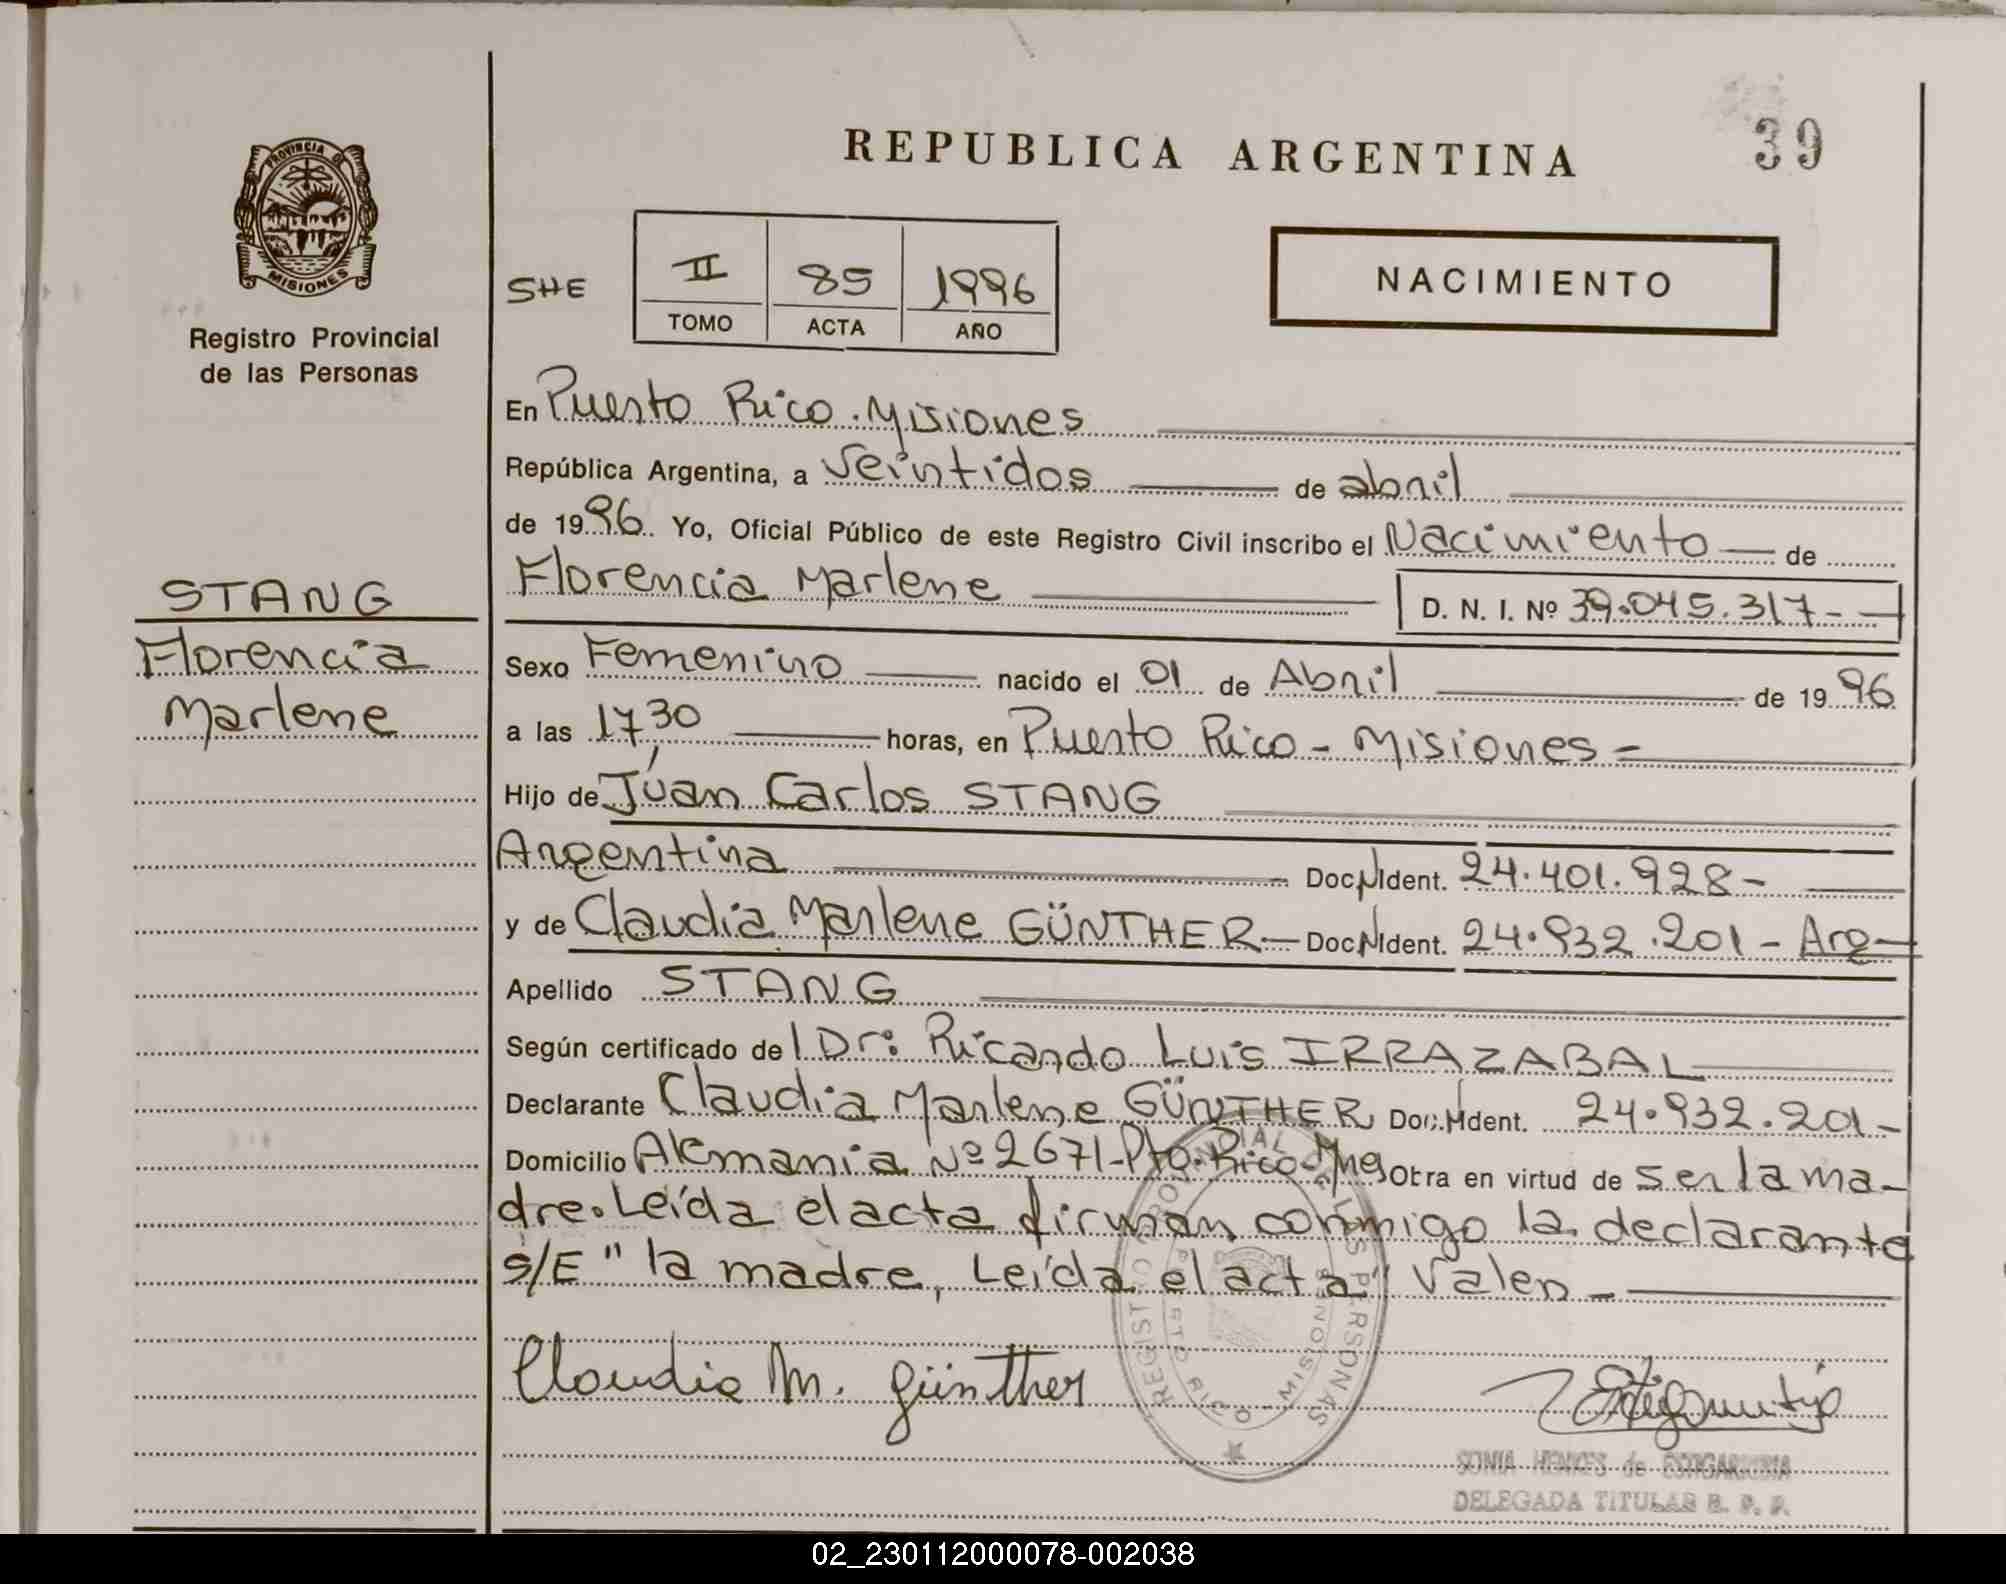 REPUBLICA ARGENTINA
39
PROVINCIA DE
MISIONES
Registro Provincial
de las Personas
SHE
II
85
1996
TOMO
ACTA
AÑO
NACIMIENTO
STANG
Florencia
Marlene
En Puerto Rico. Misiones
República Argentina, a veintidos de abril
de 1996. Yo, Oficial Público de este Registro Civil inscribo el Nacimiento de
Florencia Marlene D. N. I. Nº 39.045.317-
Sexo Femenino nacido el 01 de Abril de 1996
a las 17,30 horas, en Puerto Rico - Misiones =
Hijo de Juan Carlos STANG
Argentina Doc. N Ident. 24.401.928-
y de Claudia Marlene GÜNTHER - Doc. N Ident. 24.932.201 - Arg
Apellido STANG
Según certificado de l Dr: Ricardo Luis IRRAZABAL
Declarante Claudia Marlene GÜNTHER Doc. N Ident. 24.932.201-
Domicilio Alemania Nº 2671-Pto. Rico-Mnes Obra en virtud de ser la ma-
dre. Leída el acta firman conmigo la declarante
S/E " la madre, Leída el acta" Valen -
Claudia M. Günther
REGISTRO PROVINCIAL DE LAS PERSONAS
PTO RICO - MISIONES
SONIA HENKES de ESTIGARRIBIA
DELEGADA TITULAR R. P. P.
02_230112000078-002038